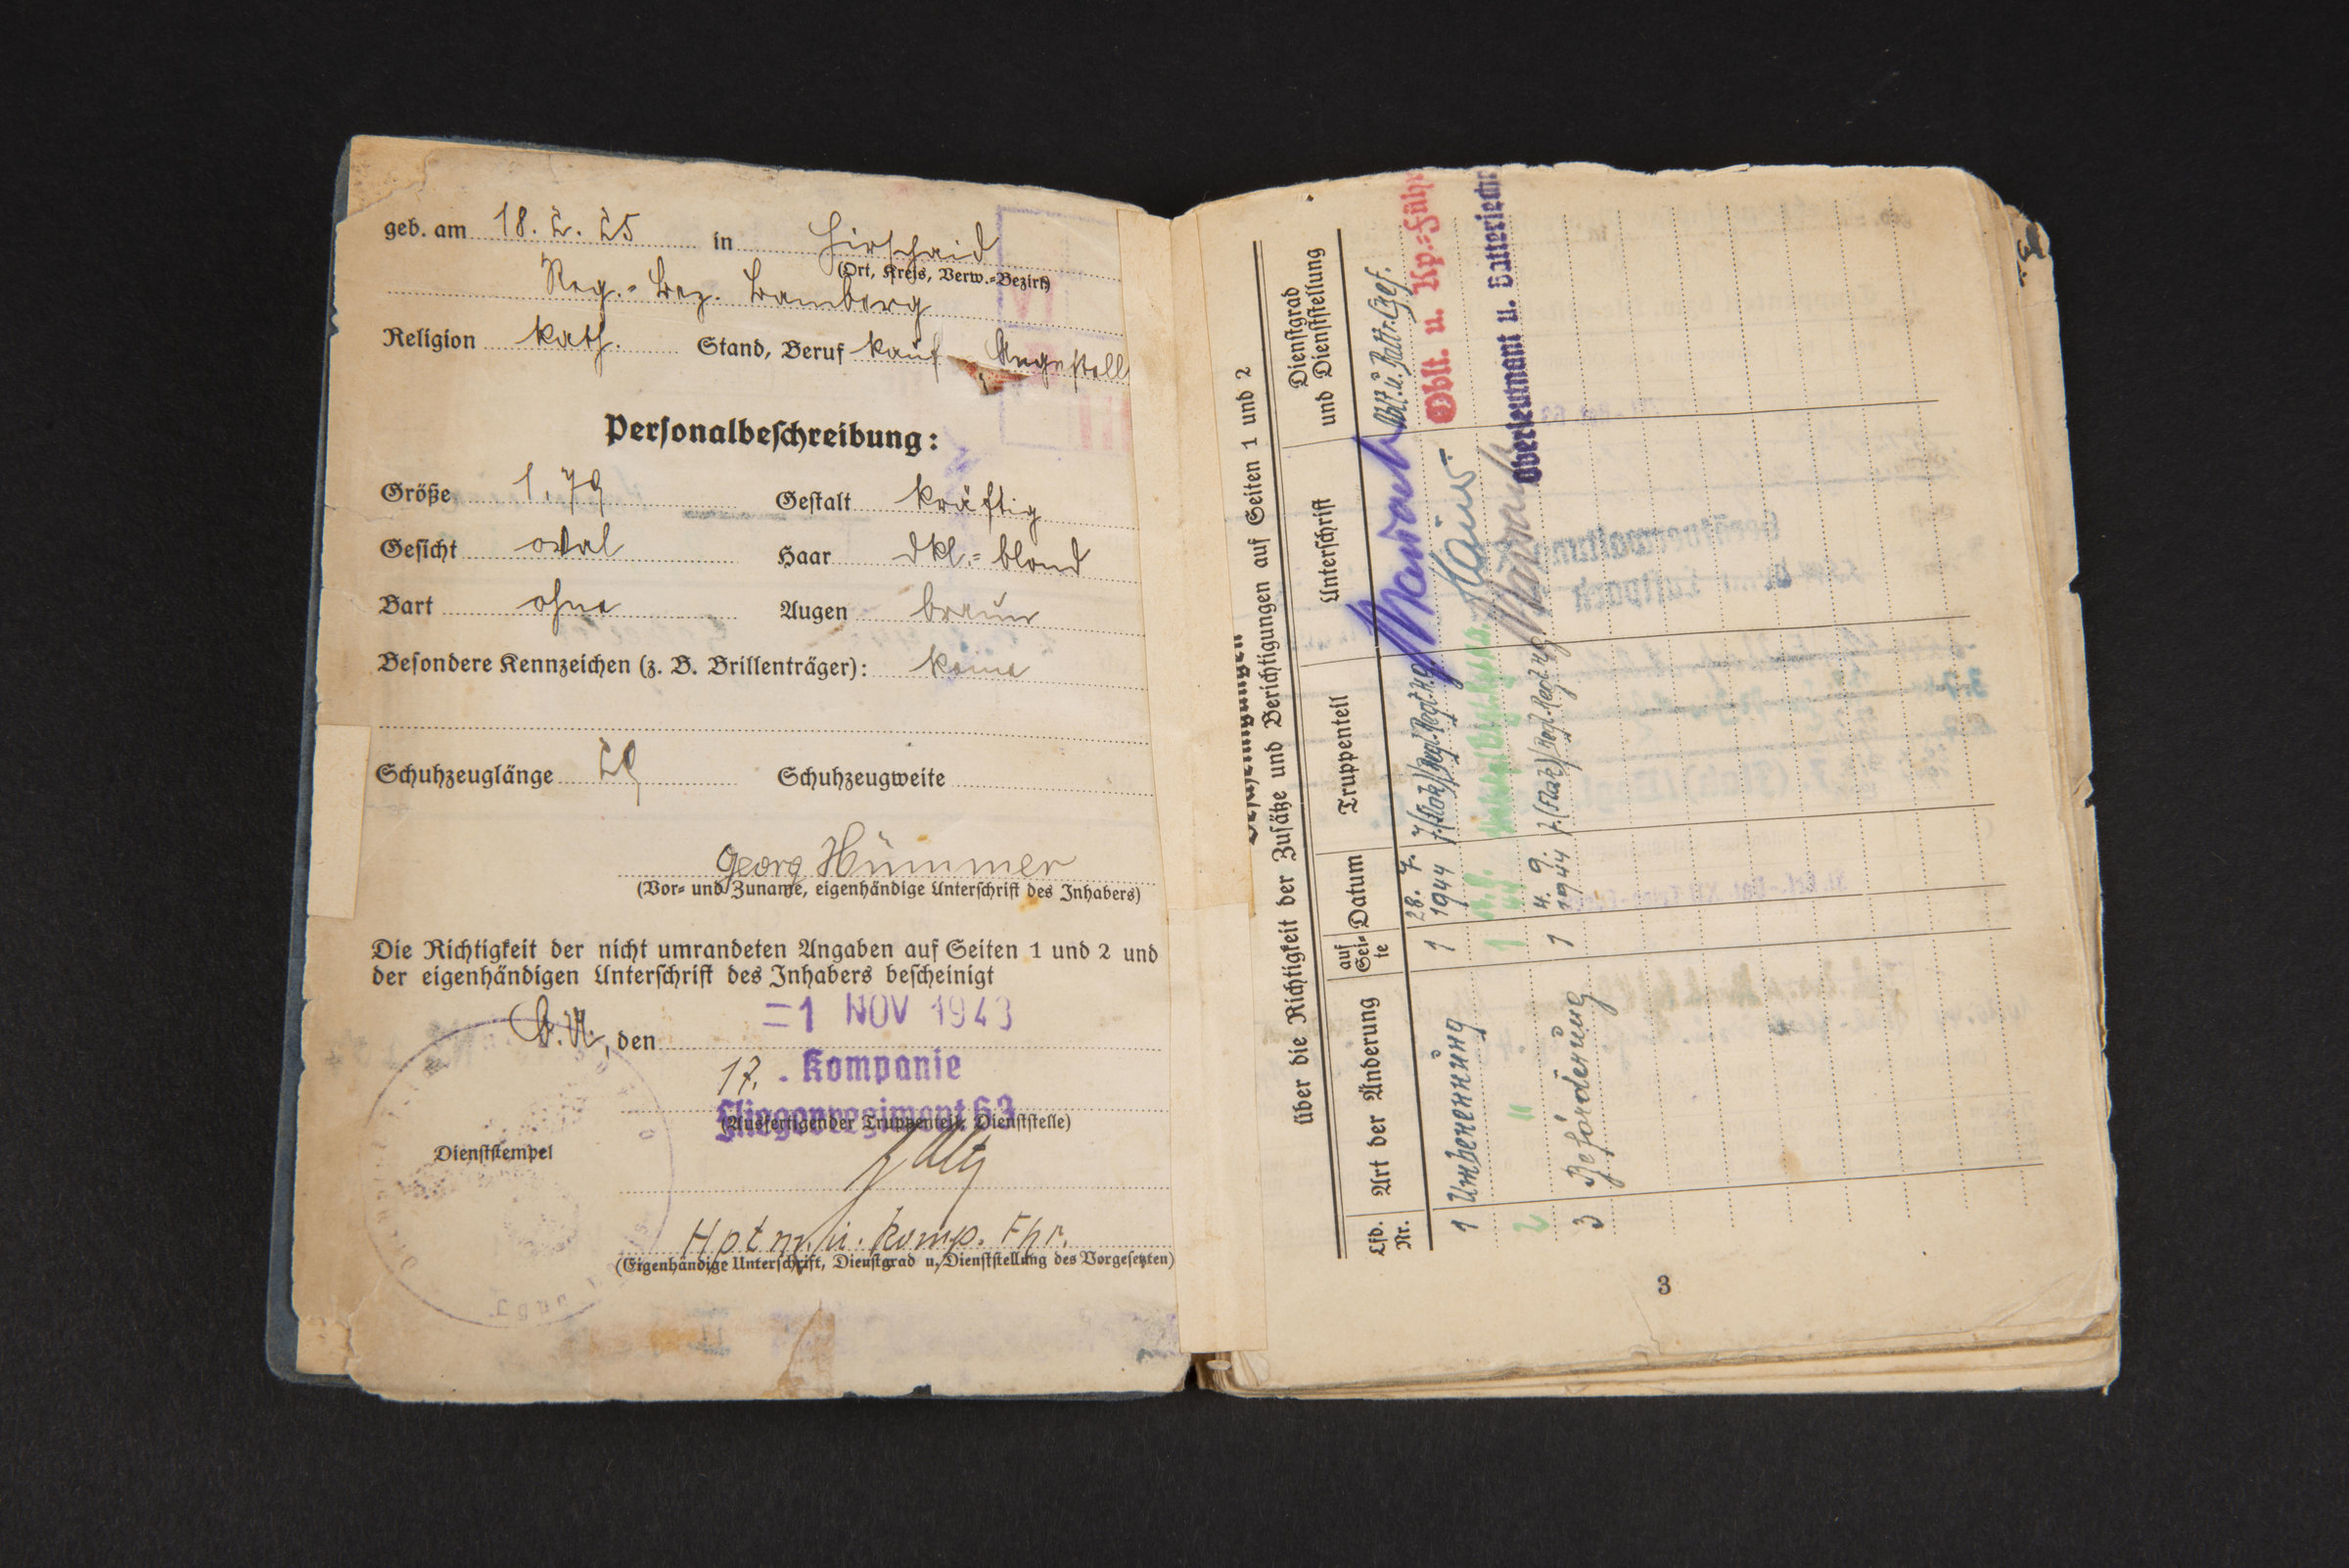 geb. am 18. 2. 25 in Hirschaid
(Ort, Kreis, Verw.=Bezirk)
Reg.=Bez. Bamberg
Religion kath. Stand, Beruf kauf. Angestell
Personalbeschreibung:
Größe 1.79 Gestalt kräftig
Gesicht oval Haar dkl.=blond
Bart ohne Augen braun
Besondere Kennzeichen (z. B. Brillenträger): keine
Schuhzeuglänge 29 Schuhzeugweite
Georg Hümmer
(Vor= und Zuname, eigenhändige Unterschrift des Inhabers)
Die Richtigkeit der nicht umrandeten Angaben auf Seiten 1 und 2 und
der eigenhändigen Unterschrift des Inhabers bescheinigt
O.U., den =1 NOV 1943
17. Kompanie
Fliegerregiment 63
(Ausfertigender Truppenteil, Dienststelle)
Dienststempel
Hptm. u. Komp. Fhr.
(Eigenhändige Unterschrift, Dienstgrad u. Dienststellung des Vorgesetzten)
über die Richtigkeit der Zusätze und Berichtigungen auf Seiten 1 und 2
Lfd. Nr. Art der Änderung auf Sei=te Datum Truppenteil Unterschrift Dienstgrad und Dienststellung
1 Umbenennung 1 28. 7. 1944 7./(Flak) Oblt. u. Battr. Chef.
2 " 1 Oblt. u. Kp.=Führ
3 Beförderung 1 4. 9. 1944 7./(Flak) Oberleutnant u. Batteriechef
3